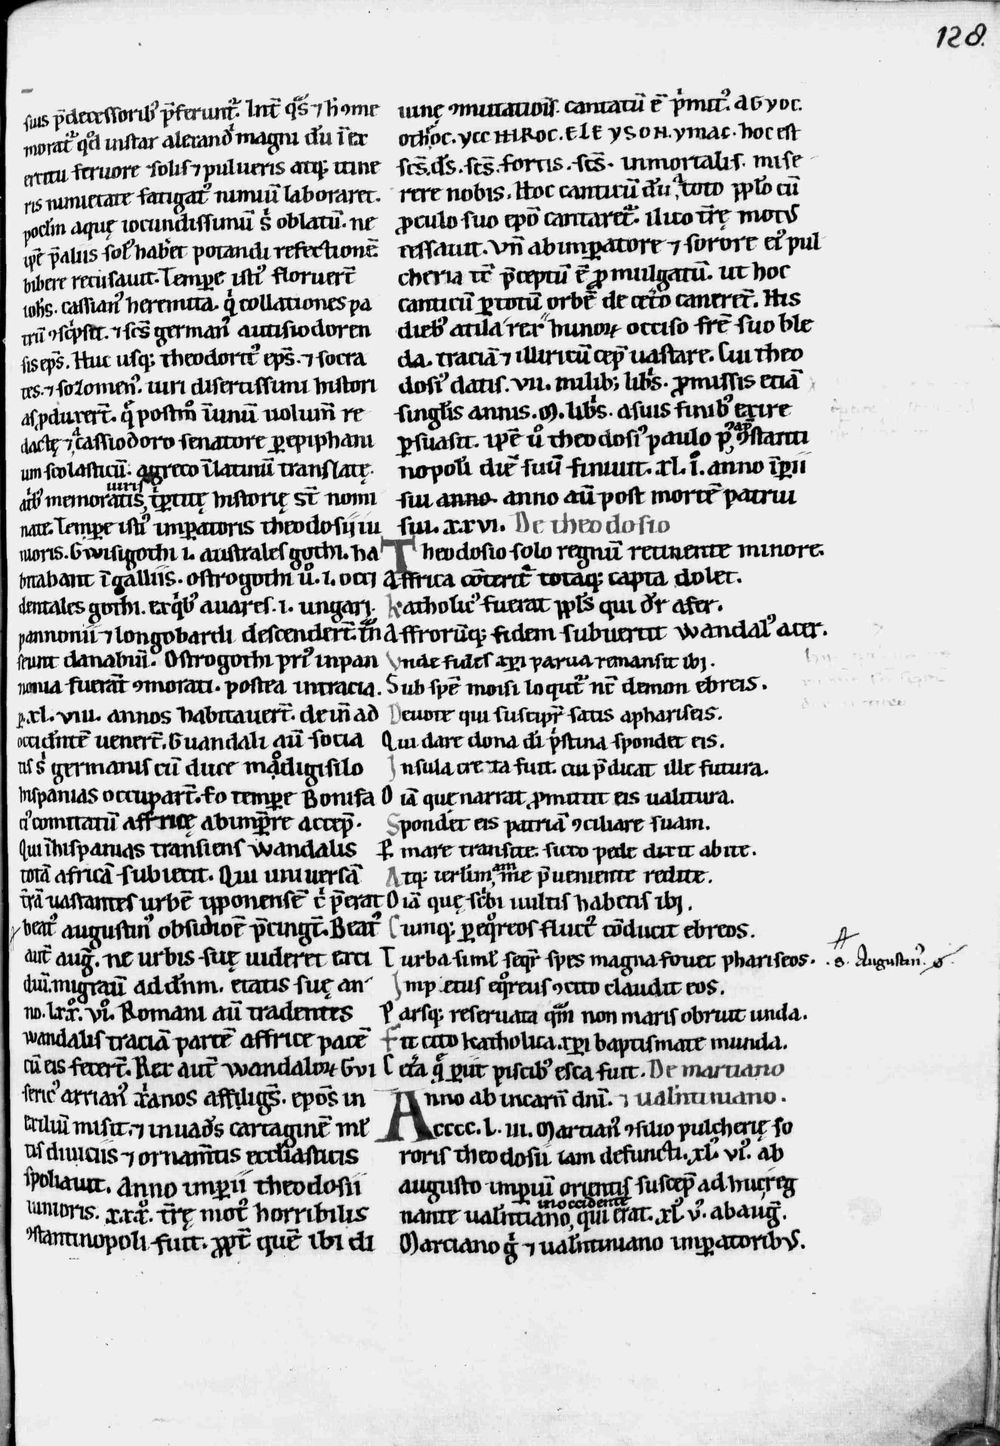 128.
suis p̄decessorib᷒ p̄ferunt᷑. Int̄ q̄s ⁊ h̄ ꝯme
morat᷑ qd̄ instar alexand̾ magni dū ī ex
ercitu feruore solis ⁊ pulueris atq; itine
ris nimietate fatigat᷒ nimiū laboraret.
poclm̄ aquę iocundissimū s̄ oblatū. ne
ip̄e p̄aliis sol᷒ haber& potandi refectionē
bibere recusauit. Temꝑe isti᷒ floruer̄t
ioh̄s. cassian᷒ heremita. q̾ collationes pa
trū ꝯsc̾psit. ⁊ sc̄s german᷒ autisiodoren
sis ep̄s. Huc usq; theodorit᷒ ep̄s. ⁊ socra
tes. ⁊ sozomen᷒. uiri disertissimi histori
as ꝑduxer̄t. q̄ postm̄ ī unū uolum̄ re
dactę ⁊ a cassiodoro senatore ꝑ epiphani
um scolasticū. a greco ī latinū translatę.
a t̾b᷒ memoratis uiris t̾ptitę historię s̄t nomi
nate. Temꝑe isti᷒ imꝑatoris theodosij iu
nioris. Gwisigothi .i. australes gothi. ha
bitabant ī galliis. ostrogothi u̾o .i. occi
dentales gothi. ex q̾b᷒ auares .i. ungari.
pannonii ⁊ longobardi descender̄t. tn̄
seunt danubiū. Ostrogothi pri᷒ in pan
nonia fuerāt ꝯmorati. postea in tracia.
ꝑ .xl.viii. annos habitauer̄t. dein̄ ad
occidentē uener̄t. Guandali aū socia
tis s̄ germanis cū duce madigisilo
hispanias occupar̄t. Eo temꝑe Bonifa
ci᷒ comitatū affricę ab imꝑre accep̄.
Qui ī hispanias transiens wandalis
totā africā subiecit. Qui uniuersā
t̄rā uastantes urbē ypponensē c̾ p̄erat
beat᷒ augustin᷒ obsidiōe p̄cingt̄. Beat᷒
aut̄ aug̾. ne urbis suę uideret exci
diū. migrauit ad dn̄m. etatis suę an
no. lxx᷒. vi᷒. Romani aū tradentes
wandalis traciā partē affrice pacē
cū eis fecer̄t. Rex aut̄ wandaloꝝ Gui
seric᷒ arrian᷒ xp̄ianos affligs̄. ep̄os in
exiliū misit. ⁊ inuad̄s cartaginē ml̄
tis diuiciis ⁊ ornam̄tis eccl̄iasticis
spoliauit. Anno imꝑii theodosii
iunioris. xxx᷒. t̄rę mot᷒ horribilis
ꝯstantinopoli fuit. ꝓpt̄ quē ibi di
iunę ꝯmutatiōis. cantatū ē p̾mit᷒. AGYOC.
OTHEOC. YCC HIROC. ELEYSON. YMAC. hoc est
sc̄s. d̄s. sc̄s. fortis. sc̄s. inmortalis. mise
rere nobis. Hoc canticū dū a toto pp̄lo cū
ꝓculo suo ep̄o cantaret᷑. ilico t̄rę mot᷒
cessauit. Vn̄ ab imꝑatore ⁊ sorore ei᷒ pul
cheria tc̄ p̄ceptū ē ꝓmulgatū. ut hoc
canticū ꝑ totū orbē de cet̾o caneret᷑. His
dieb᷒ atila rex hunoꝝ occiso fr̄e suo ble
da. traciā ⁊ illiricū cep̄ uastare. Cui theo
dosi᷒ datis .vii. milib; lib̾s. ꝓmissis etiā
singlis annis .M. lib̾s. a suis finib᷒ exire
ꝑsuasit. Ip̄e u̾o theodosi᷒ paulo p᷒ ap̄ ꝯstanti
nopoli diē suū finiuit. xl.i. anno īꝑii
sui anno. anno aū post mortē patrui
sui. xxvi. De theodosio
Theodosio solo regnū retinente minore.
Affrica cōterit᷑ totaq; capta dolet.
Katholic᷒ fuerat pp̄ls qui d̄r afer.
Affroꝝq; fidem subuertit wandal᷒ acer.
Vnde fides xp̄i parua remansit ibi.
Sub spē moisi loquit᷑ nc̄ demon ebreis.
Deuote qui suscipit᷑ satis a phariseis.
Qui dare dona d̄i p̾stina spondet eis.
Insula creta fuit. cui p̄dicat ille futura.
Oīa que narrat ꝓmittit eis ualitura.
Spondet eis patriā ꝯciliare suam.
P mare transite. sicco pede dixit abite.
Atq; ierlimam me p̄ueniente redite.
Oīa quę sc̾bi uultis habens ibi.
Cumq; ꝑ eq̾reos fluct᷒ cōducit ebreos.
Turba siml̄ seqr̄ spes magna fouet phariseos. . s. Augustin᷒
Imp etus eq̾reus ꝯcito claudit eos.
Parsq; reseruata qm̄ non maris obruit unda.
Fit cito katholica. xp̄i baptismate munda.
Cet̾a q̄ ꝑiit piscib᷒ esca fuit. De marciano
Anno ab incarn̄ dn̄i. ⁊ ualn̄tiniano.
CCCC.L.III. Marcian᷒ ꝯsilio pulcherię so
roris theodosii iam defuncti. xl᷒. vi᷒. ab
augusto imꝑiū orientis suscep̄ adhuc reg
nante ualn̄tiniano, in occidente qui erat .xl᷒. v᷒. ab aug̾.
Marciano g̾ ⁊ ualn̄tiniano imꝑatorib᷒.